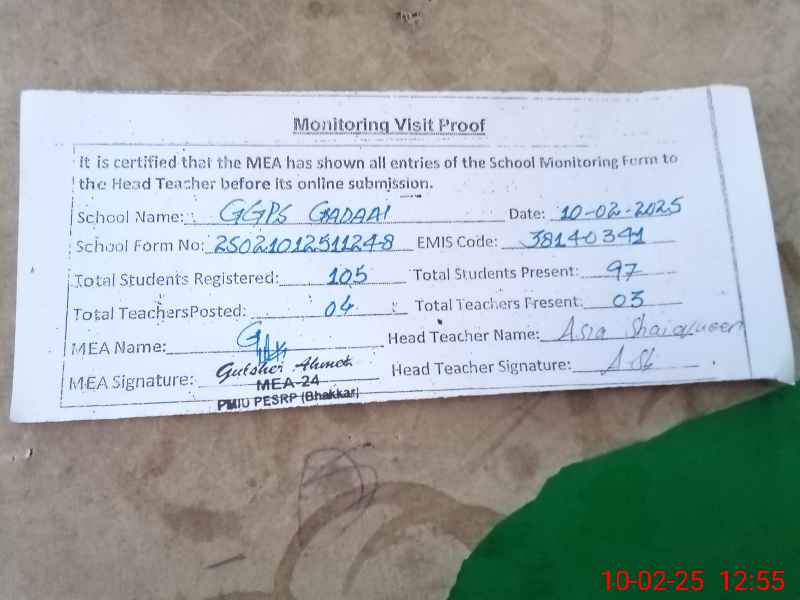 Monitoring Visit Proof
It is certified that the MEA has shown all entries of the School Monitoring Form to
the Head Teacher before its online submission.
School Name: GGPS GADAAI Date: 10-02-2025
School Form No: 2502101251124-8 EMIS Code: 38140341
Total Students Registered: 105 Total Students Present: 97
Total TeachersPosted: 04 Total Teachers Present: 03
MEA Name: Head Teacher Name: Asra
MEA Signature: Gulsher Ahmed Head Teacher Signature:
MEA-24
PMIU PESRP (Bhakkar)
10-02-25 12:55